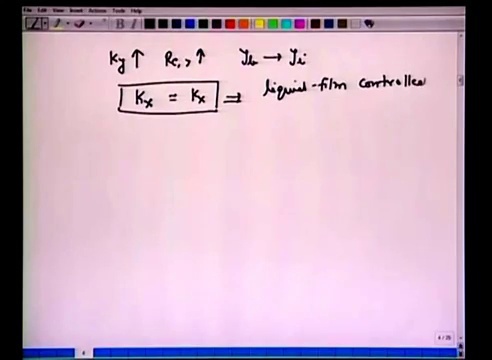 File Edit View Insert Actions Tools Help
Ky ↑ Re,y ↑ yb → yi
Kx = Kx ⇒ liquid-film controlled
4
4 / 25